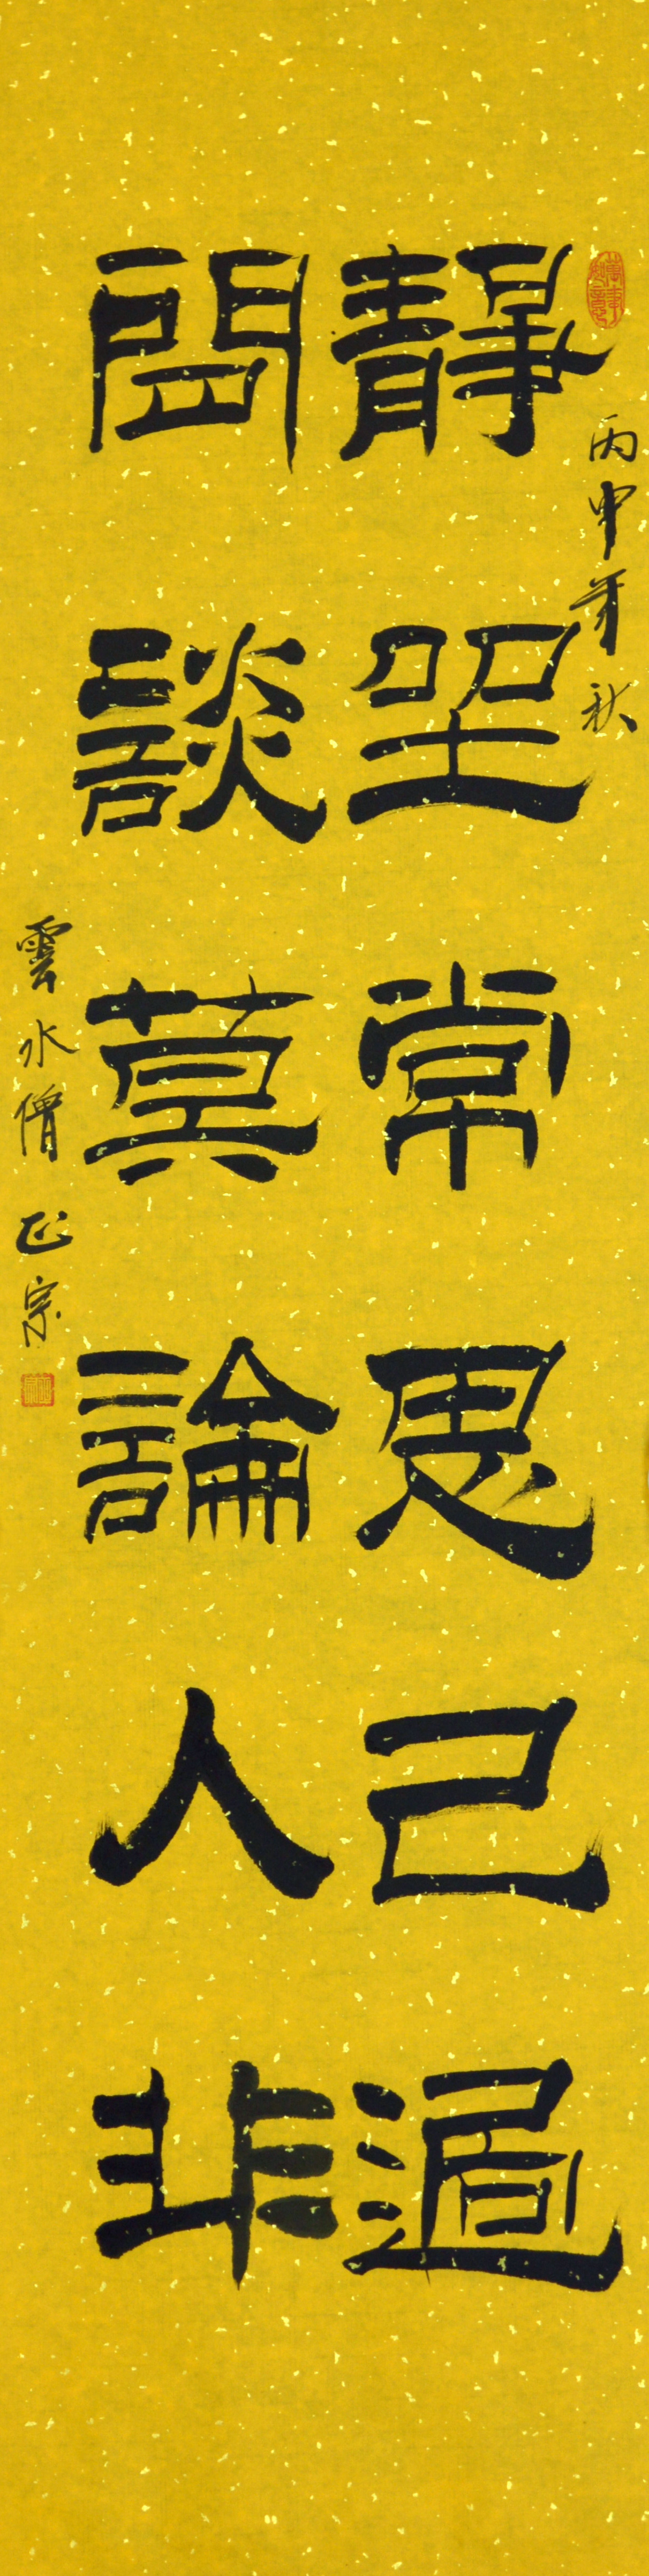 萬事如意
丙申年秋
靜坐常思己過
閒談莫論人非
雲水僧 正宗